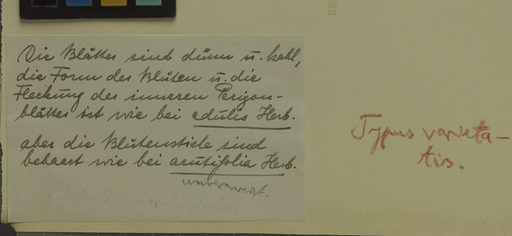 Die Blätter sind dünn u. kahl,
die Form der Blüten u. die
Fleckung der inneren Perigon-
blätter ist wie bei edulis Herb.
aber die Blütenstiele sind
behaart wie bei acutifolia Herb.
Typus varieta-
tis.